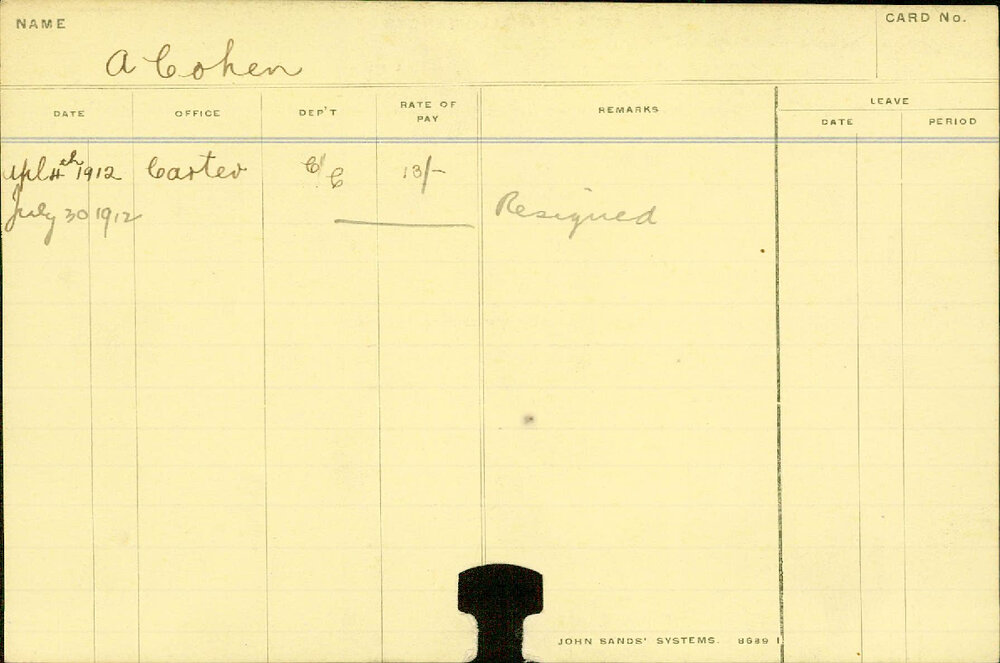 NAME
CARD No.
A Cohen
DATE OFFICE DEP'T RATE OF PAY REMARKS LEAVE
DATE PERIOD
Apl 4th 1912 Carter C/C 13/-
July 30 1912 Resigned
JOHN SANDS' SYSTEMS. 8689 1